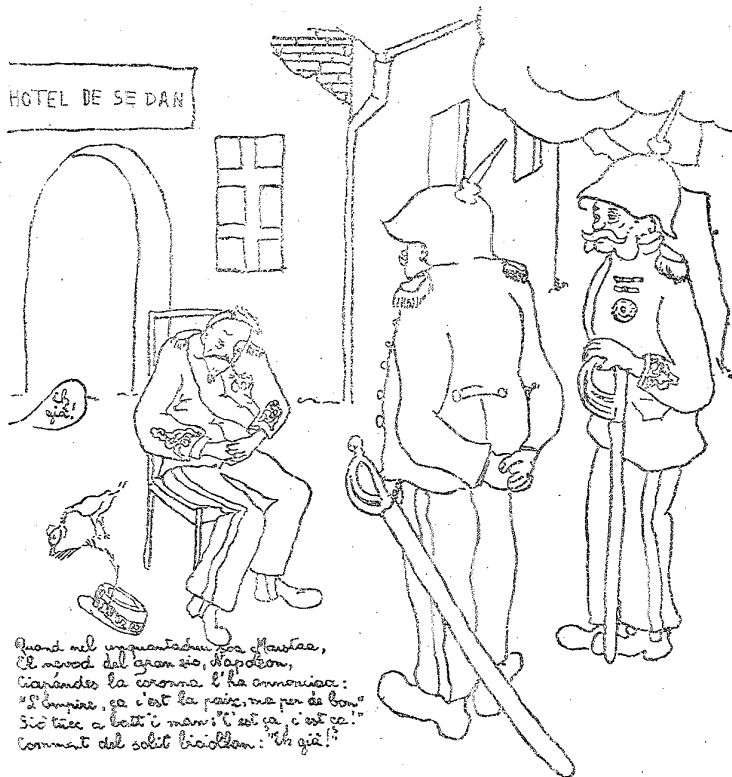 HOTEL DE SEDAN
Eh
già!
Quand nel Maestaa,
El nevod del gran zio, Napoleon,
Ciapàndes la coronna l'ha annonciaa:
"L'Empire, ça c'est la paix, ma per de bon"
Giò tucc a batt i man: "C'est ça, c'est ça!"
Comment del solit biciollan: "Eh già!"